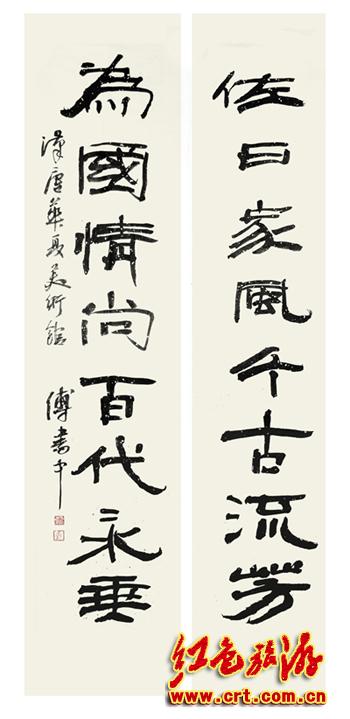 佐日家風千古流芳
為國情尚百代永垂
漢唐華夏美術館
傅書中
红色旅游
www.crt.com.cn